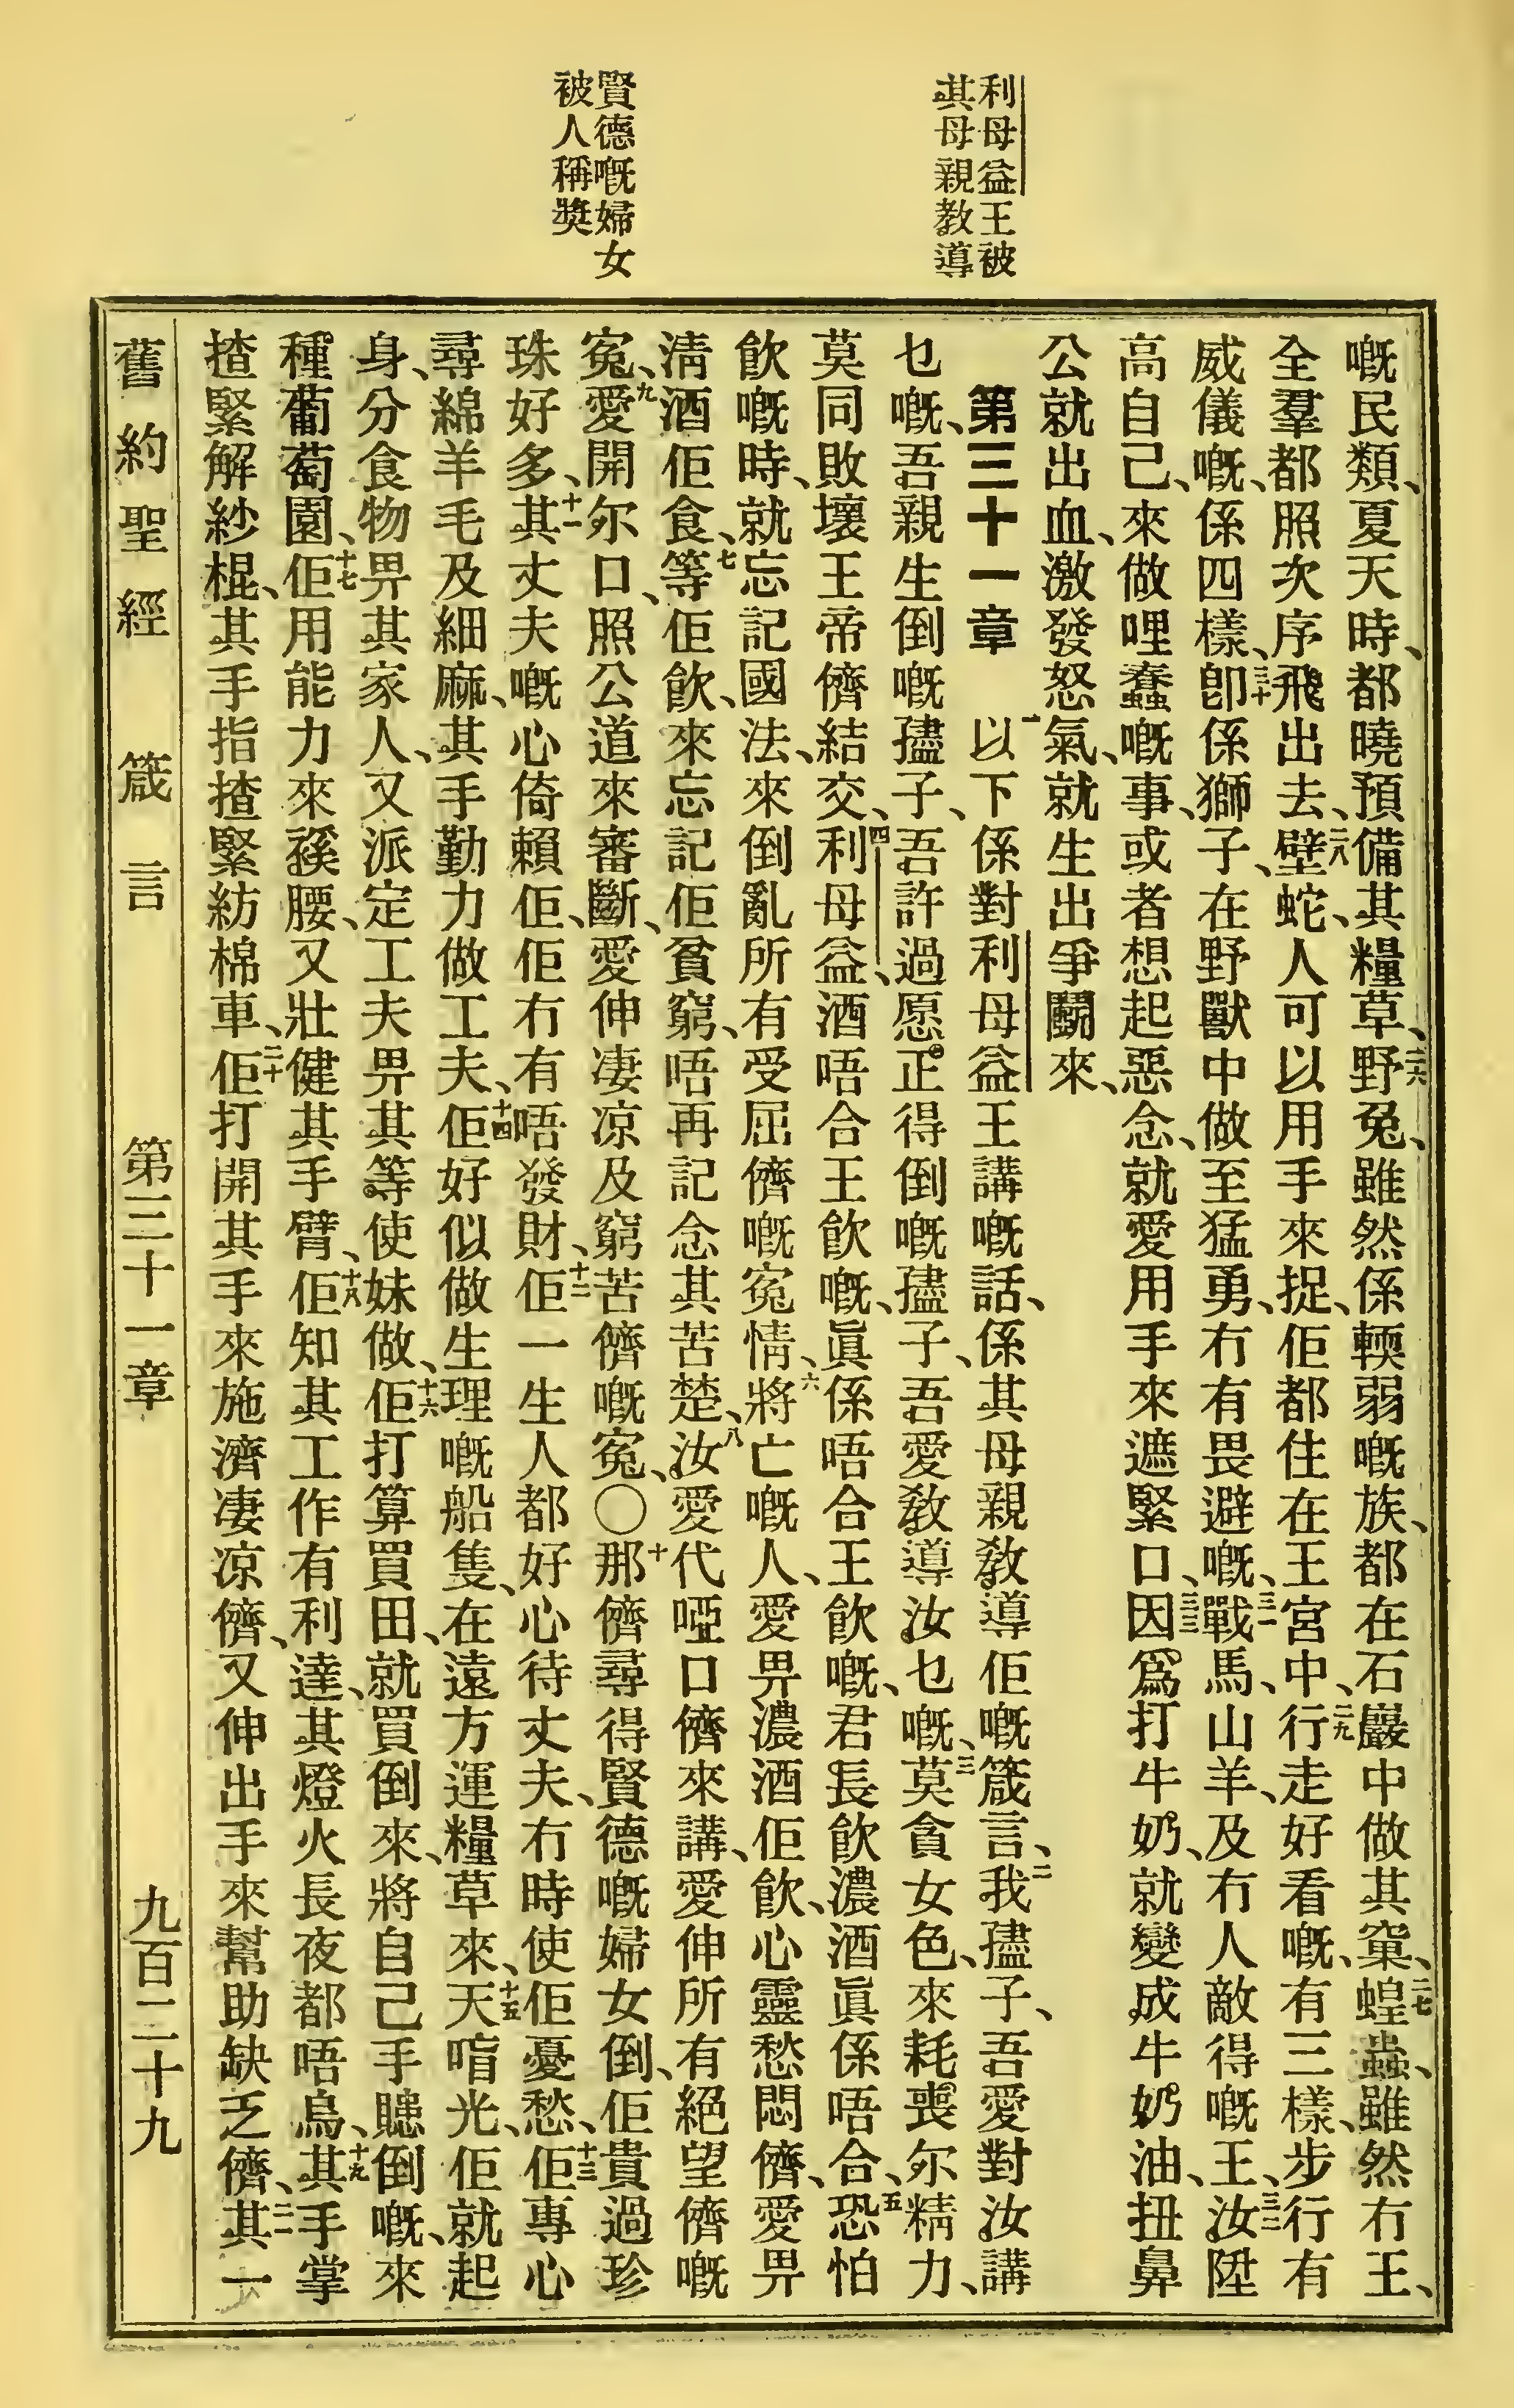 利母益王被
其母親教導
賢德嘅婦女
被人稱獎
嘅民類、夏天時、都曉預備其糧草、二六野兔、雖然係輭弱嘅族、都在石巖中做其窠、二七蝗蟲、雖然冇王、
全羣都照次序飛出去、二八壁蛇、人可以用手來捉、佢都住在王宮中、二九行走好看嘅、有三樣、步行有
威儀嘅、係四樣、三十卽係獅子、在野獸中做至猛勇、冇有畏避嘅、三一戰馬、山羊、及冇人敵得嘅王、三二汝陞
高自己、來做哩蠢嘅事、或者想起惡念、就愛用手來遮緊口、三三因爲打牛奶、就變成牛奶油、扭鼻
公就出血、激發怒氣、就生出爭鬭來、
第三十一章 一以下係對利母益王講嘅話、係其母親教導佢嘅箴言、二我孻子、吾愛對汝講
乜嘅、吾親生倒嘅孻子、吾許過愿正得倒嘅孻子、吾愛教導汝乜嘅、三莫貪女色、來耗喪尔精力、
莫同敗壞王帝儕結交、四利母益、酒唔合王飲嘅、眞係唔合王飲嘅、君長飲濃酒眞係唔合、五恐怕
飲嘅時、就忘記國法、來倒亂所有受屈儕嘅寃情、六將亡嘅人、愛畀濃酒佢飲、心靈愁悶儕、愛畀
淸酒佢食、七等佢飲、來忘記佢貧窮、唔再記念其苦楚、八汝愛代啞口儕來講、愛伸所有絕望儕嘅
寃、九愛開尔口、照公道來審斷、愛伸凄凉及窮苦儕嘅寃、〇十那儕尋得賢德嘅婦女倒、佢貴過珍
珠好多、十一其丈夫嘅心倚賴佢、佢冇有唔發財、十二佢一生人都好心待丈夫、冇時使佢憂愁、十三佢專心
尋綿羊毛及細麻、其手勤力做工夫、十四佢好似做生理嘅船隻、在遠方運糧草來、十五天唷光、佢就起
身、分食物畀其家人、又派定工夫畀其等使妹做、十六佢打算買田、就買倒來、將自己手䞍倒嘅、來
種葡萄園、十七佢用能力來䙆腰、又壯健其手臂、十八佢知其工作有利達、其燈火長夜都唔烏、十九其手掌
揸緊解紗棍、其手指揸緊紡棉車、二十佢打開其手來施濟凄凉儕、又伸出手來幫助缺乏儕、二一其一
舊約聖經 箴言 第三十一章 九百二十九